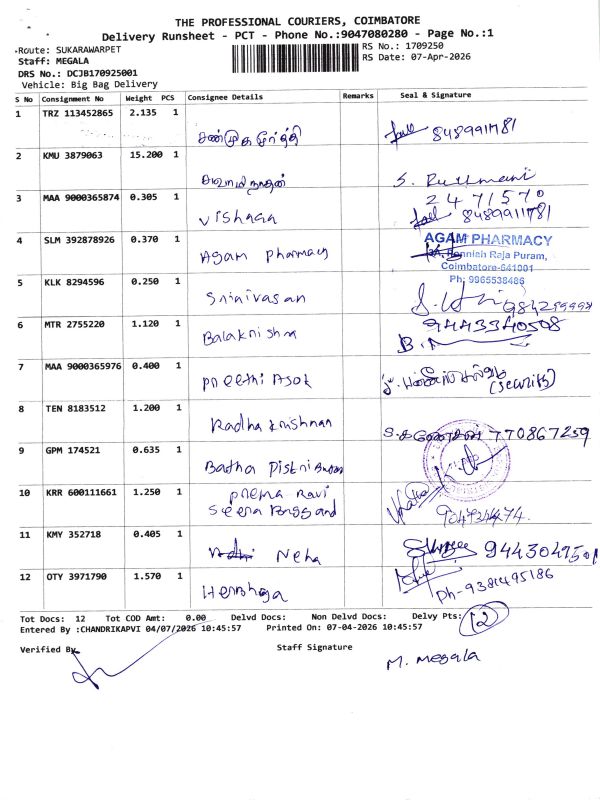 THE PROFESSIONAL COURIERS, COIMBATORE
Delivery Runsheet - PCT - Phone No.:9047080280 - Page No.:1
Route: SUKARAWARPET
RS No.: 1709250
Staff: MEGALA
RS Date: 07-Apr-2026
DRS No.: DCJB170925001
Vehicle: Big Bag Delivery
S No Consignment No Weight PCS Consignee Details Remarks Seal & Signature
1 TRZ 113452865 2.135 1
சண்முகமூர்த்தி 8489911781
2 KMU 3879063 15.200 1
சுவாமிநாதன் S.
3 MAA 9000365874 0.305 1 2471570
Vishaga 8489911781
4 SLM 392878926 0.370 1 AGAM PHARMACY
Agam pharmacy Ponniah Raja Puram,
Coimbatore-641001
5 KLK 8294596 0.250 1 Ph: 9965538486
Srinivasan
6 MTR 2755220 1.120 1 9443340508
Balakrishna B.
7 MAA 9000365976 0.400 1
preethi Asok (Security)
8 TEN 8183512 1.200 1
Radha Krishnan 770867259
9 GPM 174521 0.635 1
10 KRR 600111661 1.250 1 prema Ravi
11 KMY 352718 0.405 1
Neha
12 OTY 3971790 1.570 1
Ph-9381495186
Tot Docs: 12 Tot COD Amt: 0.00 Delvd Docs: Non Delvd Docs: Delvy Pts: 12
Entered By :CHANDRIKAPVI 04/07/2026 10:45:57 Printed On: 07-04-2026 10:45:57
Verified By
Staff Signature
M. Megala